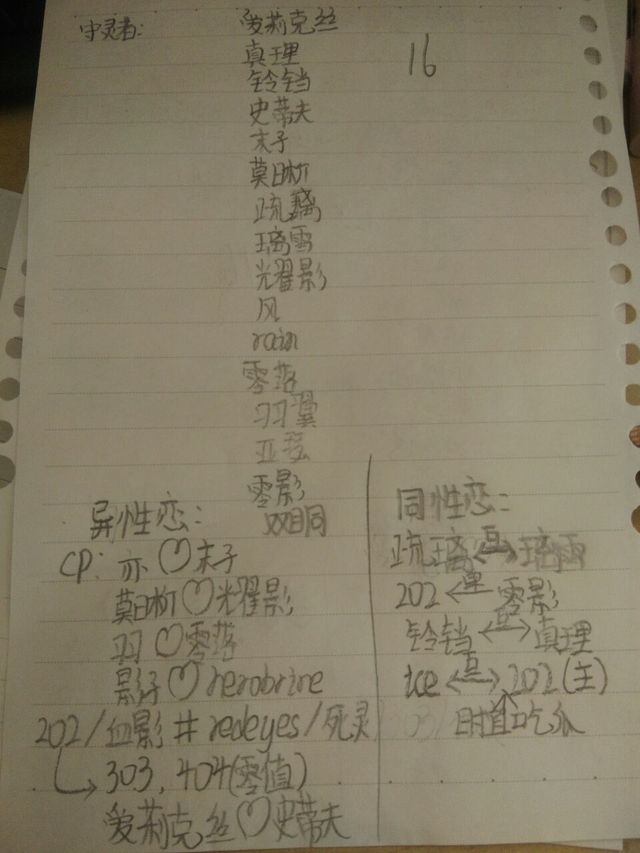 守灵者: 爱莉克丝
真理
铃铛
16
史蒂夫
末子
莫日析
疏璃
璃雪
光耀影
风
rain
零落
羽翼
亚
零影
双瞳
异性恋:
CP: 亦♡末子
莫日析♡光耀影
羽♡零落
影子♡herobrine
202/血影 # redeyes/死灵
303, 404(零值)
爱莉克丝♡史蒂夫
同性恋:
疏璃<互>璃雪
202<单 零影
铃铛<互>真理
ice<互>202(主)
吃瓜